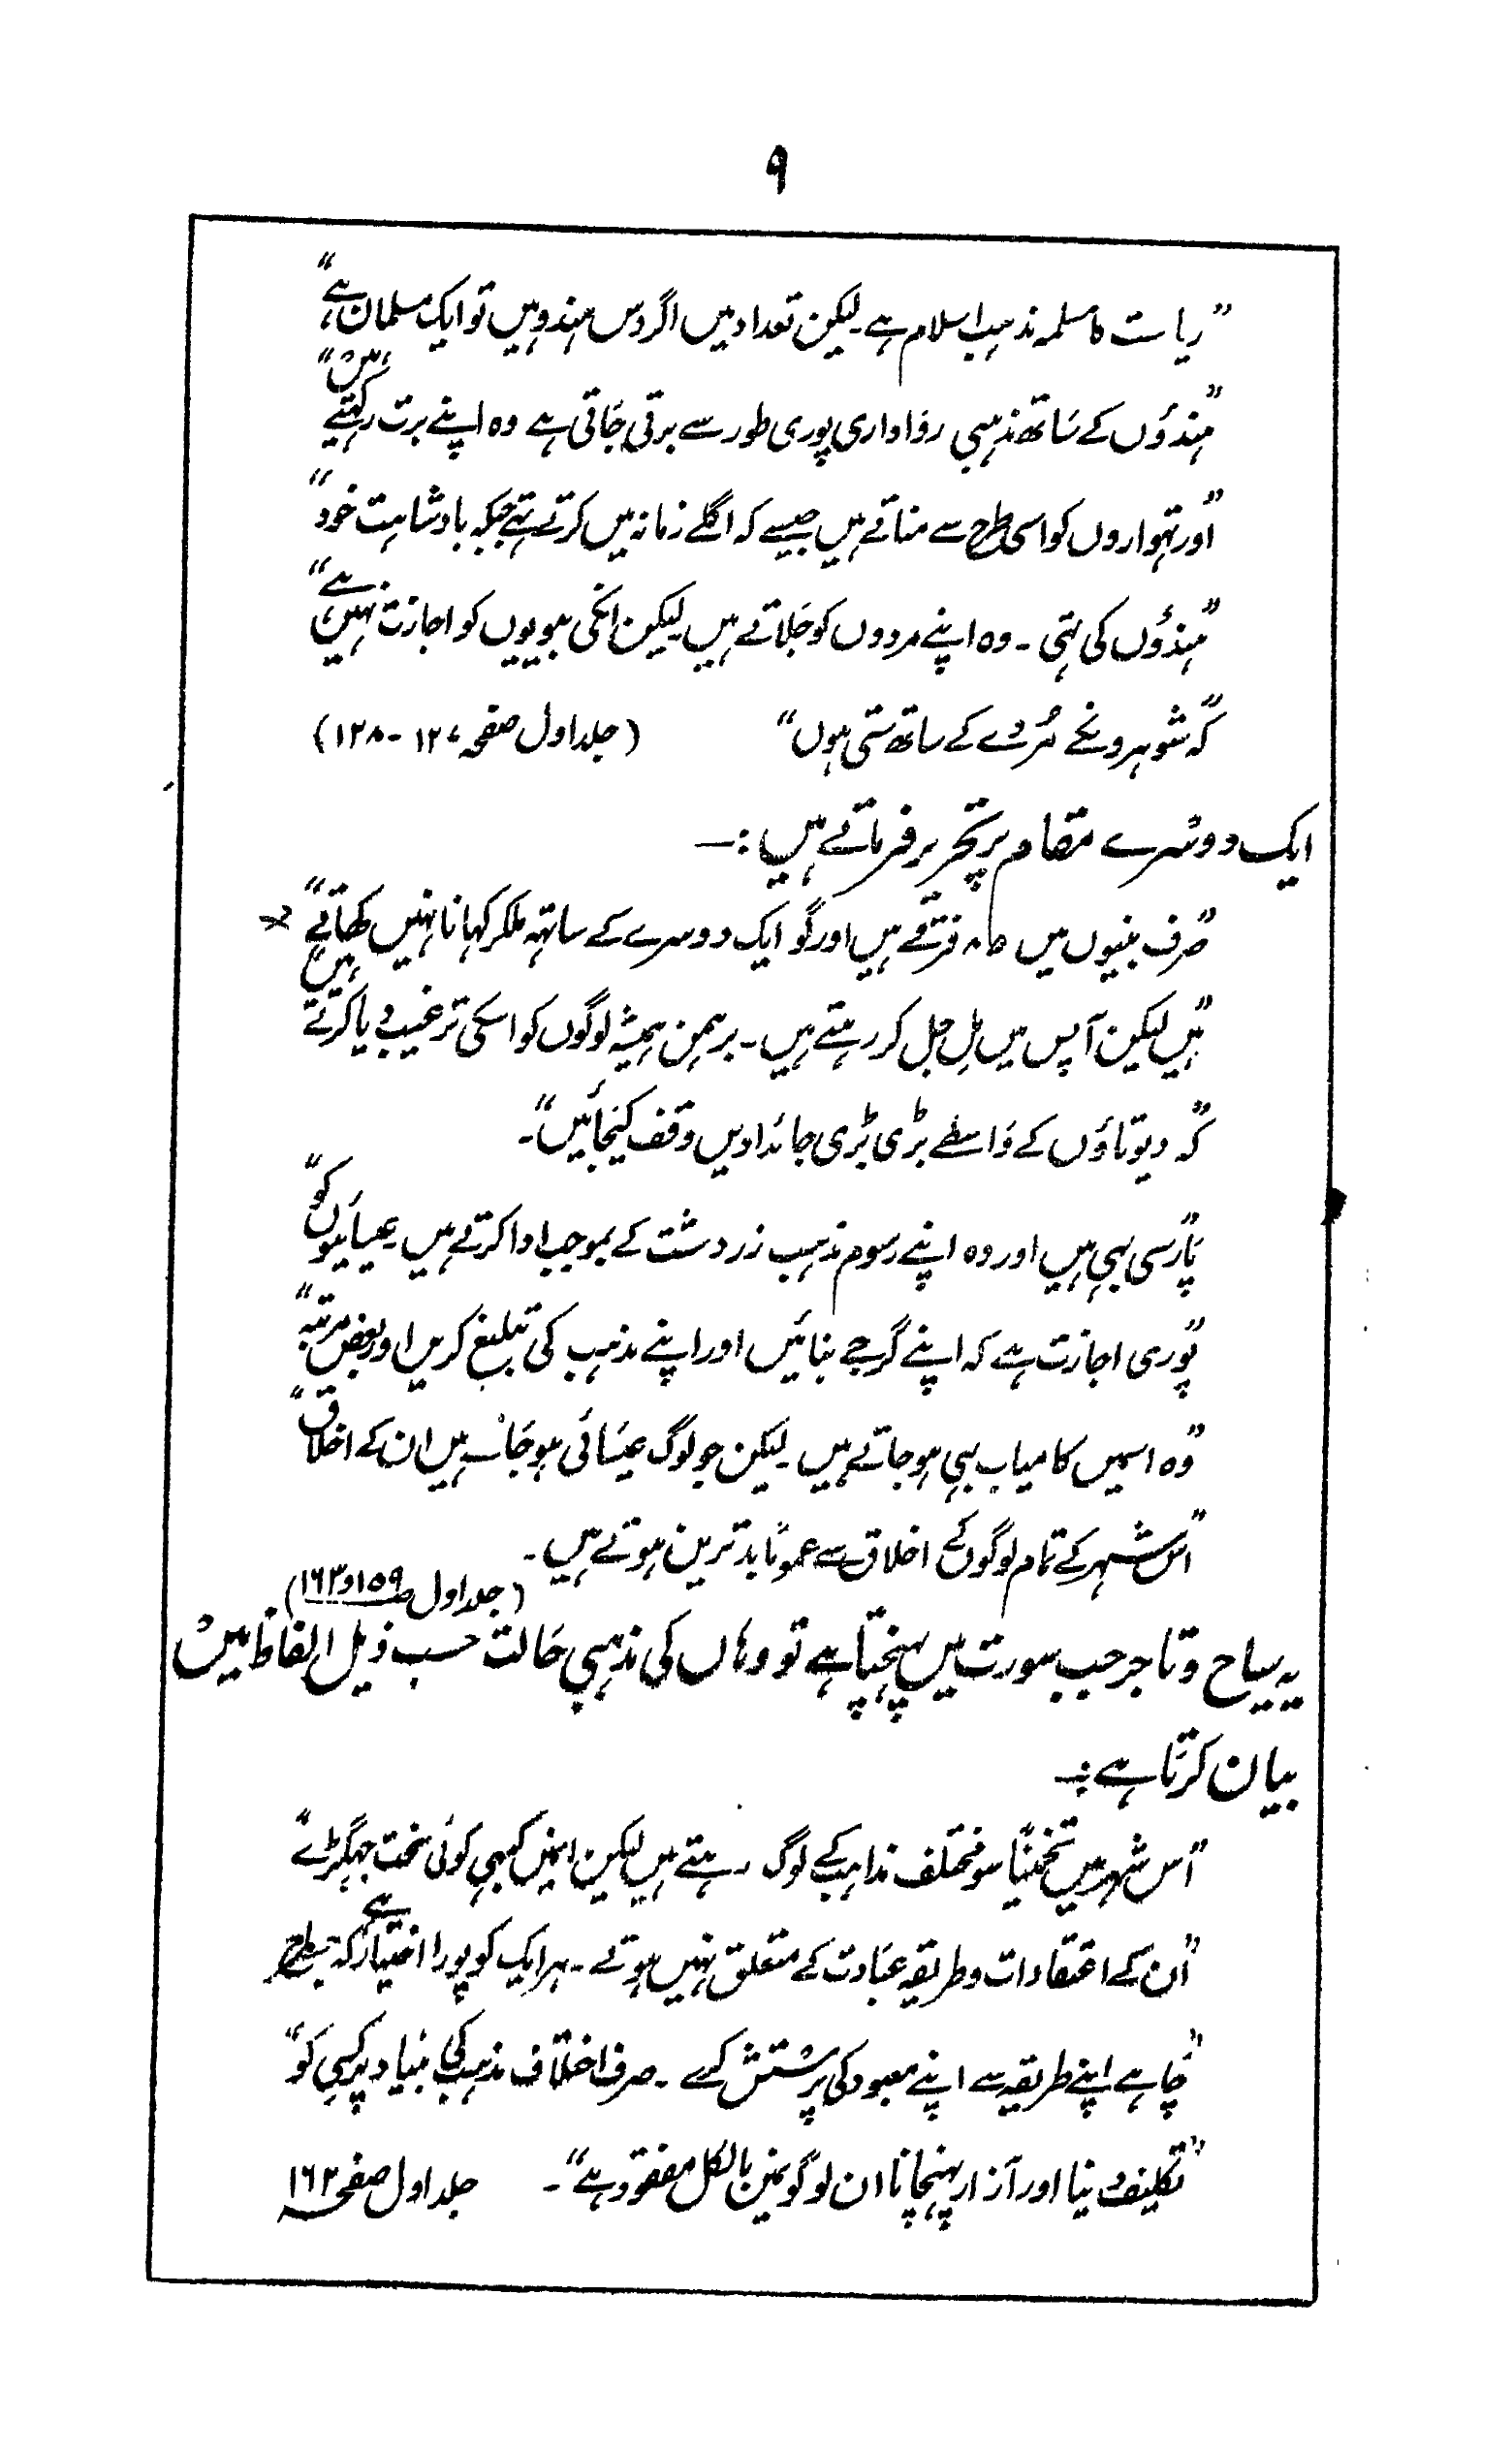 ۹
"ریاست کا مسلمہ مذہب اسلام ہے۔ لیکن تعداد میں اگر دس ہندو ہیں تو ایک مسلمان ہے"
"ہندوؤں کے ساتھ مذہبی رواداری پوری طور سے برتی جاتی ہے وہ اپنے برت رکہتے ہیں"
"اور تہواروں کو اسی طرح سے مناتے ہیں جیسے کہ اگلے زمانہ میں کرتے تہے جبکہ بادشاہت خود"
"ہندؤوں کی تہی۔ وہ اپنے مردوں کو جلاتے ہیں لیکن انکی بیویوں کو اجازت نہیں ہے"
"کہ شوہرونکے مُردے کے ساتھ ستی ہوں" (جلد اول صفحہ ۱۲۷-۱۲۸)
ایک دوسرے مقام پر تحریر فرماتے ہیں :—
"صرف بنیوں میں ۸۵ فرقے ہیں اور گو ایک دوسرے کے ساتہہ ملکر کہانا نہیں کھاتے"
"ہیں لیکن آپس میں مِل جل کر رہتے ہیں۔ برہمن ہمیشہ لوگوں کو اسکی ترغیب دیا کرتے ہیں
"کہ دیوتاؤں کے واسطے بڑی بڑی جائدادیں وقف کیجائیں"۔
"پارسی بہی ہیں اور وہ اپنے رسوم مذہب زردشت کے بموجب ادا کرتے ہیں۔ عیسائیوں کو"
"پوری اجازت ہے کہ اپنے گرجے بنائیں اور اپنے مذہب کی تبلیغ کریں اور بعض مرتبہ"
"وہ اسمیں کامیاب بہی ہوجاتے ہیں لیکن جو لوگ عیسائی ہوجاتے ہیں ان کے اخلاق"
"اس شہر کے تمام لوگوں کے اخلاق سے عموماً بدترین ہوتے ہیں۔
(جلد اول صـ ۱۵۹ و ۱۶۳)
یہ سیاح و تاجر جب سورت میں پہنچتا ہے تو وہاں کی مذہبی حالت حسب ذیل الفاظ میں
بیان کرتا ہے :—
"اس شہر میں تخمیناً سو مختلف مذاہب کے لوگ رہتے ہیں لیکن انمیں کبہی کوئی سخت جہگڑے"
"ان کے اعتقادات و طریقہ عبادت کے متعلق نہیں ہوتے۔ ہر ایک کو پورا اختیار ہے کہ جسطرح
"چاہے اپنے طریقہ سے اپنے معبود کی پرستش کرے۔ صرف اختلاف مذہب کی بنیاد پر کسی کو"
"تکلیف دینا اور آزار پہنچانا ان لوگونمیں بالکل مفقود ہے"۔ جلد اول صفحہ ۱۶۲